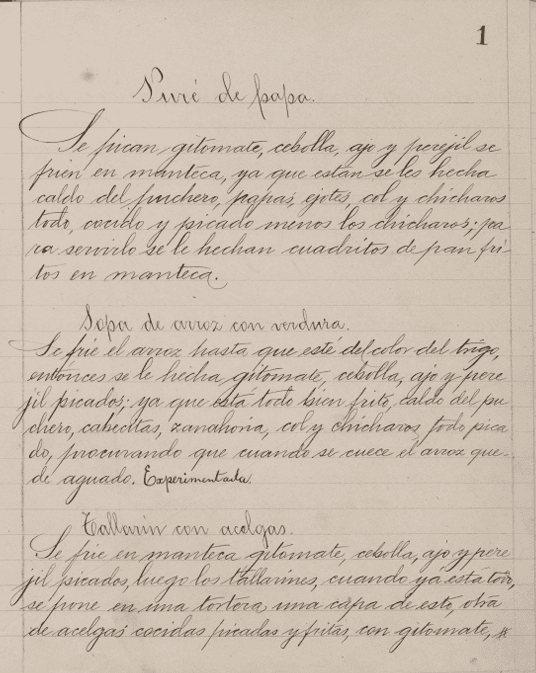 1
Puré de papa.
Se pican gitomate, cebolla, ajo y perejil se
frien en manteca, ya que están se les hecha
caldo del puchero, papas, ejotes, col y chicharos
todo, cocido y picado menos los chicharos; pa
ra servirlo se le hechan cuadritos de pan fri-
tos en manteca.
Sopa de arroz con verdura.
Se frie el arroz hasta que esté del color del trigo,
entónces se le hecha, gitomate, cebolla, ajo y pere
jil picados; ya que está todo bien frito, caldo del pu
chero, cabecitas, zanahoria, col y chicharos todo pica
do, procurando que cuando se cuece el arroz que-
de aguado. Experimentada.
Tallarin con acelgas.
Se frie en manteca gitomate, cebolla, ajo y pere
jil picados, luego los tallarines, cuando ya está todo,
se pone en una tortera una capa de esto, otra
de acelgas cocidas picadas y fritas, con gitomate,